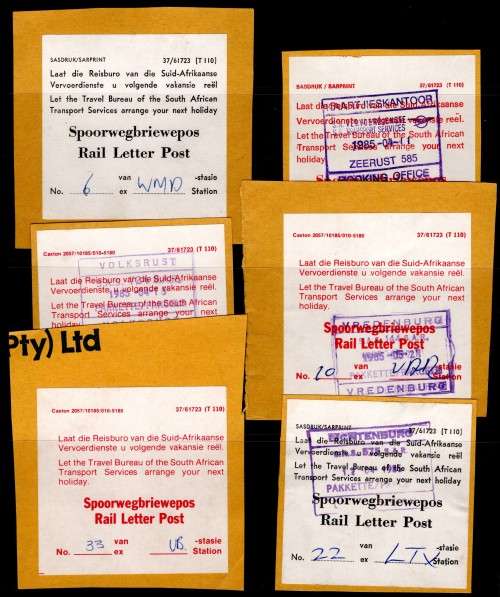 SASDRUK/SARPRINT 37/61723 [T 110]
Laat die Reisburo van die Suid-Afrikaanse
Vervoerdienste u volgende vakansie reël
Let the Travel Bureau of the South African
Transport Services arrange your next
holiday
Spoorwegbriewepos
Rail Letter Post
van -stasie
No. 6 ex WMD Station
SASDRUK / SARPRINT 37/61723 (T 110)
Laat die Reisburo van die Suid-Afrikaanse
Vervoerdienste u volgende vakansie reël.
Let the Travel Bureau of the South African
Transport Services arrange your next
holiday
KAARTJIESKANTOOR
TRANSPORT SERVICES
1985 -04- 11
ZEERUST 585
BOOKING OFFICE
37/61723 (T 110)
Laat die Reisburo van die Suid-Afrikaanse
Vervoerdienste u volgende vakansie reël.
Let the Travel Bureau of the South African
Transport Services arrange your next
holiday
VOLKSRUST
Caxton 2057/10185/010-5180 37/61723 (T 110)
Laat die Reisburo van die Suid-Afrikaanse
Vervoerdienste u volgende vakansie reël.
Let the Travel Bureau of the South African
Transport Services arrange your next
holiday.
Spoorwegbriewepos
Rail Letter Post
van -stasie
No. 10 ex Station
VREDENBURG
1985 -05- 28
VREDENBURG
Pty) Ltd
Caxton 2057/10185/010-5180 37/61723 (T 110)
Laat die Reisburo van die Suid-Afrikaanse
Vervoerdienste u volgende vakansie reël.
Let the Travel Bureau of the South African
Transport Services arrange your next
holiday.
Spoorwegbriewepos
Rail Letter Post
van -stasie
No. 33 ex UB Station
SASDRUK/SARPRINT 37/61723 [T 110]
Laat die Reisburo van die Suid-Afrikaanse
Vervoerdienste u volgende vakansie reël
Let the Travel Bureau of the South African
Transport Services arrange your next
holiday
LICHTENBURG
Spoorwegbriewepos
Rail Letter Post
van -stasie
No. 22 ex LTV Station